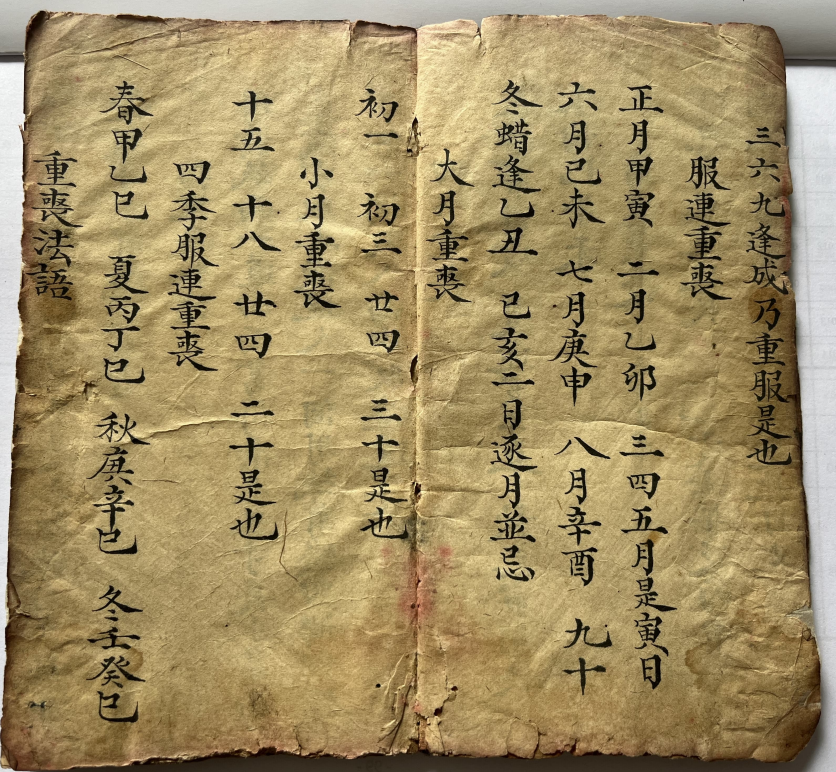 三六九逢成乃重服是也
服連重喪
正月甲寅 二月乙卯 三四五月是寅日
六月己未 七月庚申 八月辛酉 九十
冬蜡逢乙丑 巳亥二日逐月並忌
大月重喪
初一 初三 廿四 三十是也
小月重喪
十五 十八 廿四 二十是也
四季服連重喪
春甲乙巳 夏丙丁巳 秋庚辛巳 冬壬癸巳
重喪法語